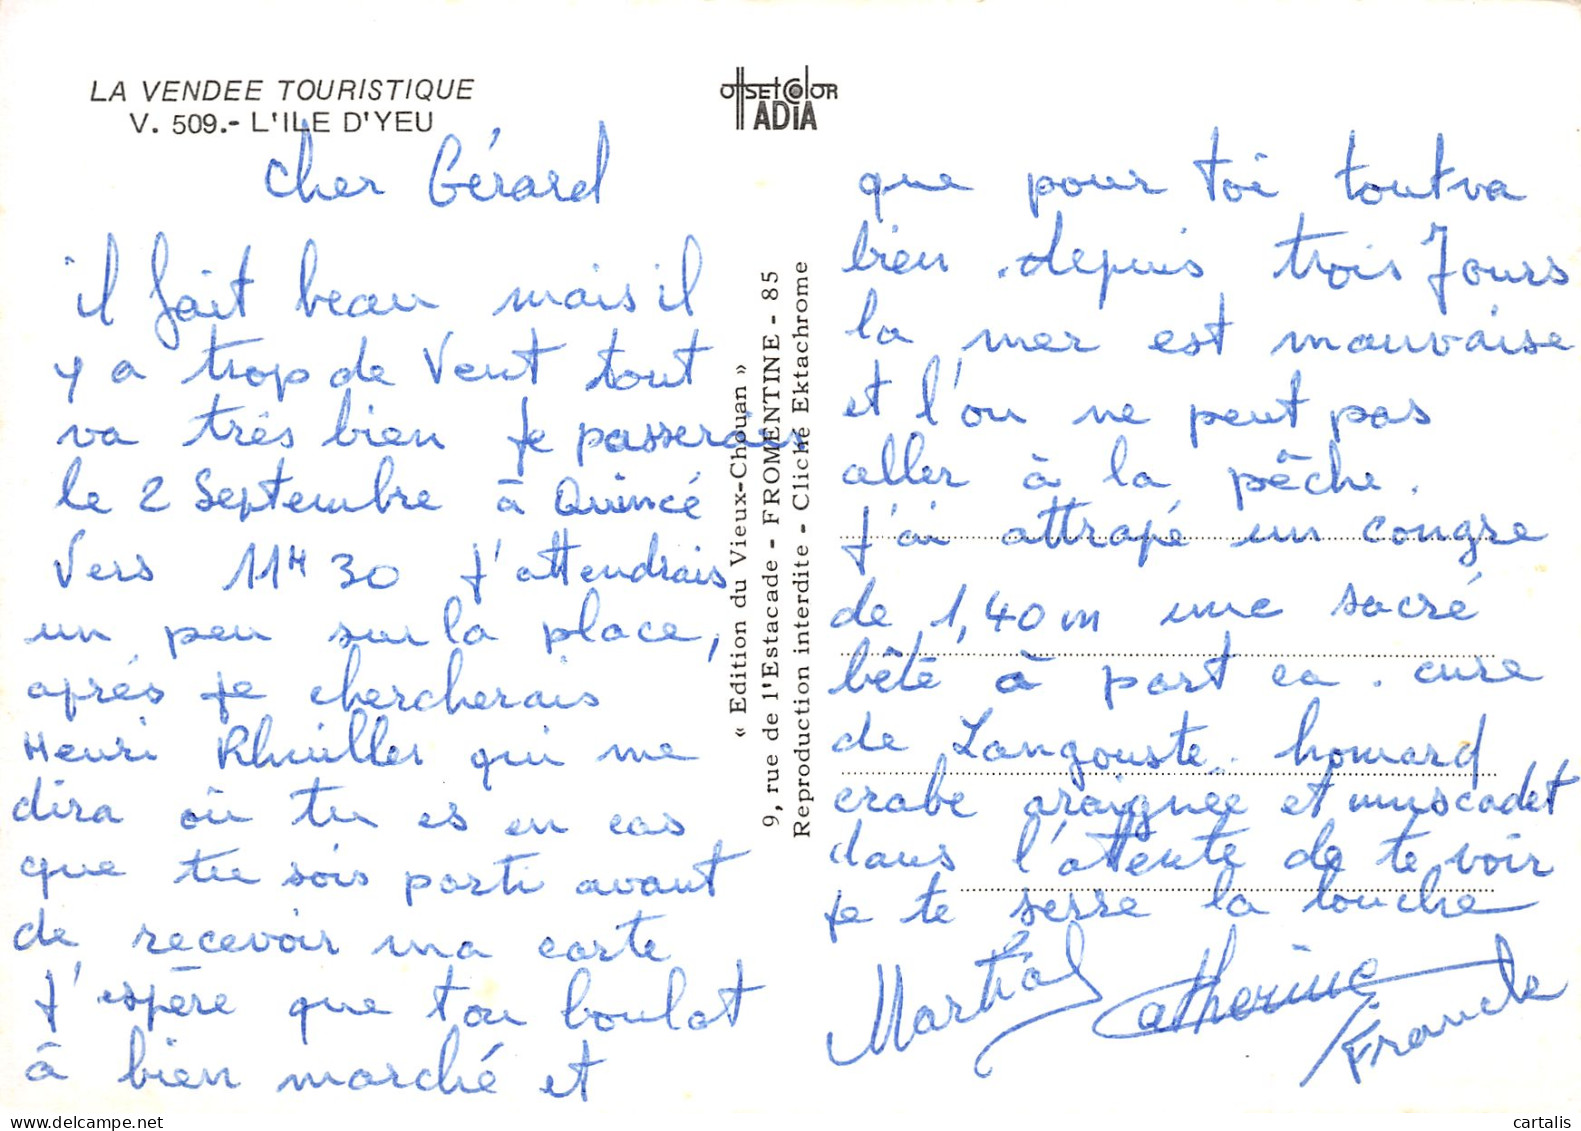 LA VENDEE TOURISTIQUE
V. 509.- L'ILE D'YEU
OffSEtColor
ADiA
cher Gérard
il fait beau mais il
y a trop de vent tout
va très bien je passerais
le 2 Septembre à Quincé
Vers 11H30 J'attendrais
un peu sur la place,
après je chercherais
Henri qui me
dira où tu es en cas
que tu sois parti avant
de recevoir ma carte
J'espère que ton boulot
à bien marché et
« Edition du Vieux-Chouan »
9, rue de l'Estacade - FROMENTINE - 85
Reproduction interdite - Cliché Ektachrome
que pour toi tout va
bien . depuis trois Jours
la mer est mauvaise
et l'on ne peut pas
aller à la pêche .
J'ai attrapé un congre
de 1,40m une sacré
bête à part ca . cure
de Langouste homard
crabe araignée et muscadet
dans l'attente de te voir
je te serre la louche
Martial Catherine
Franck
cartalis